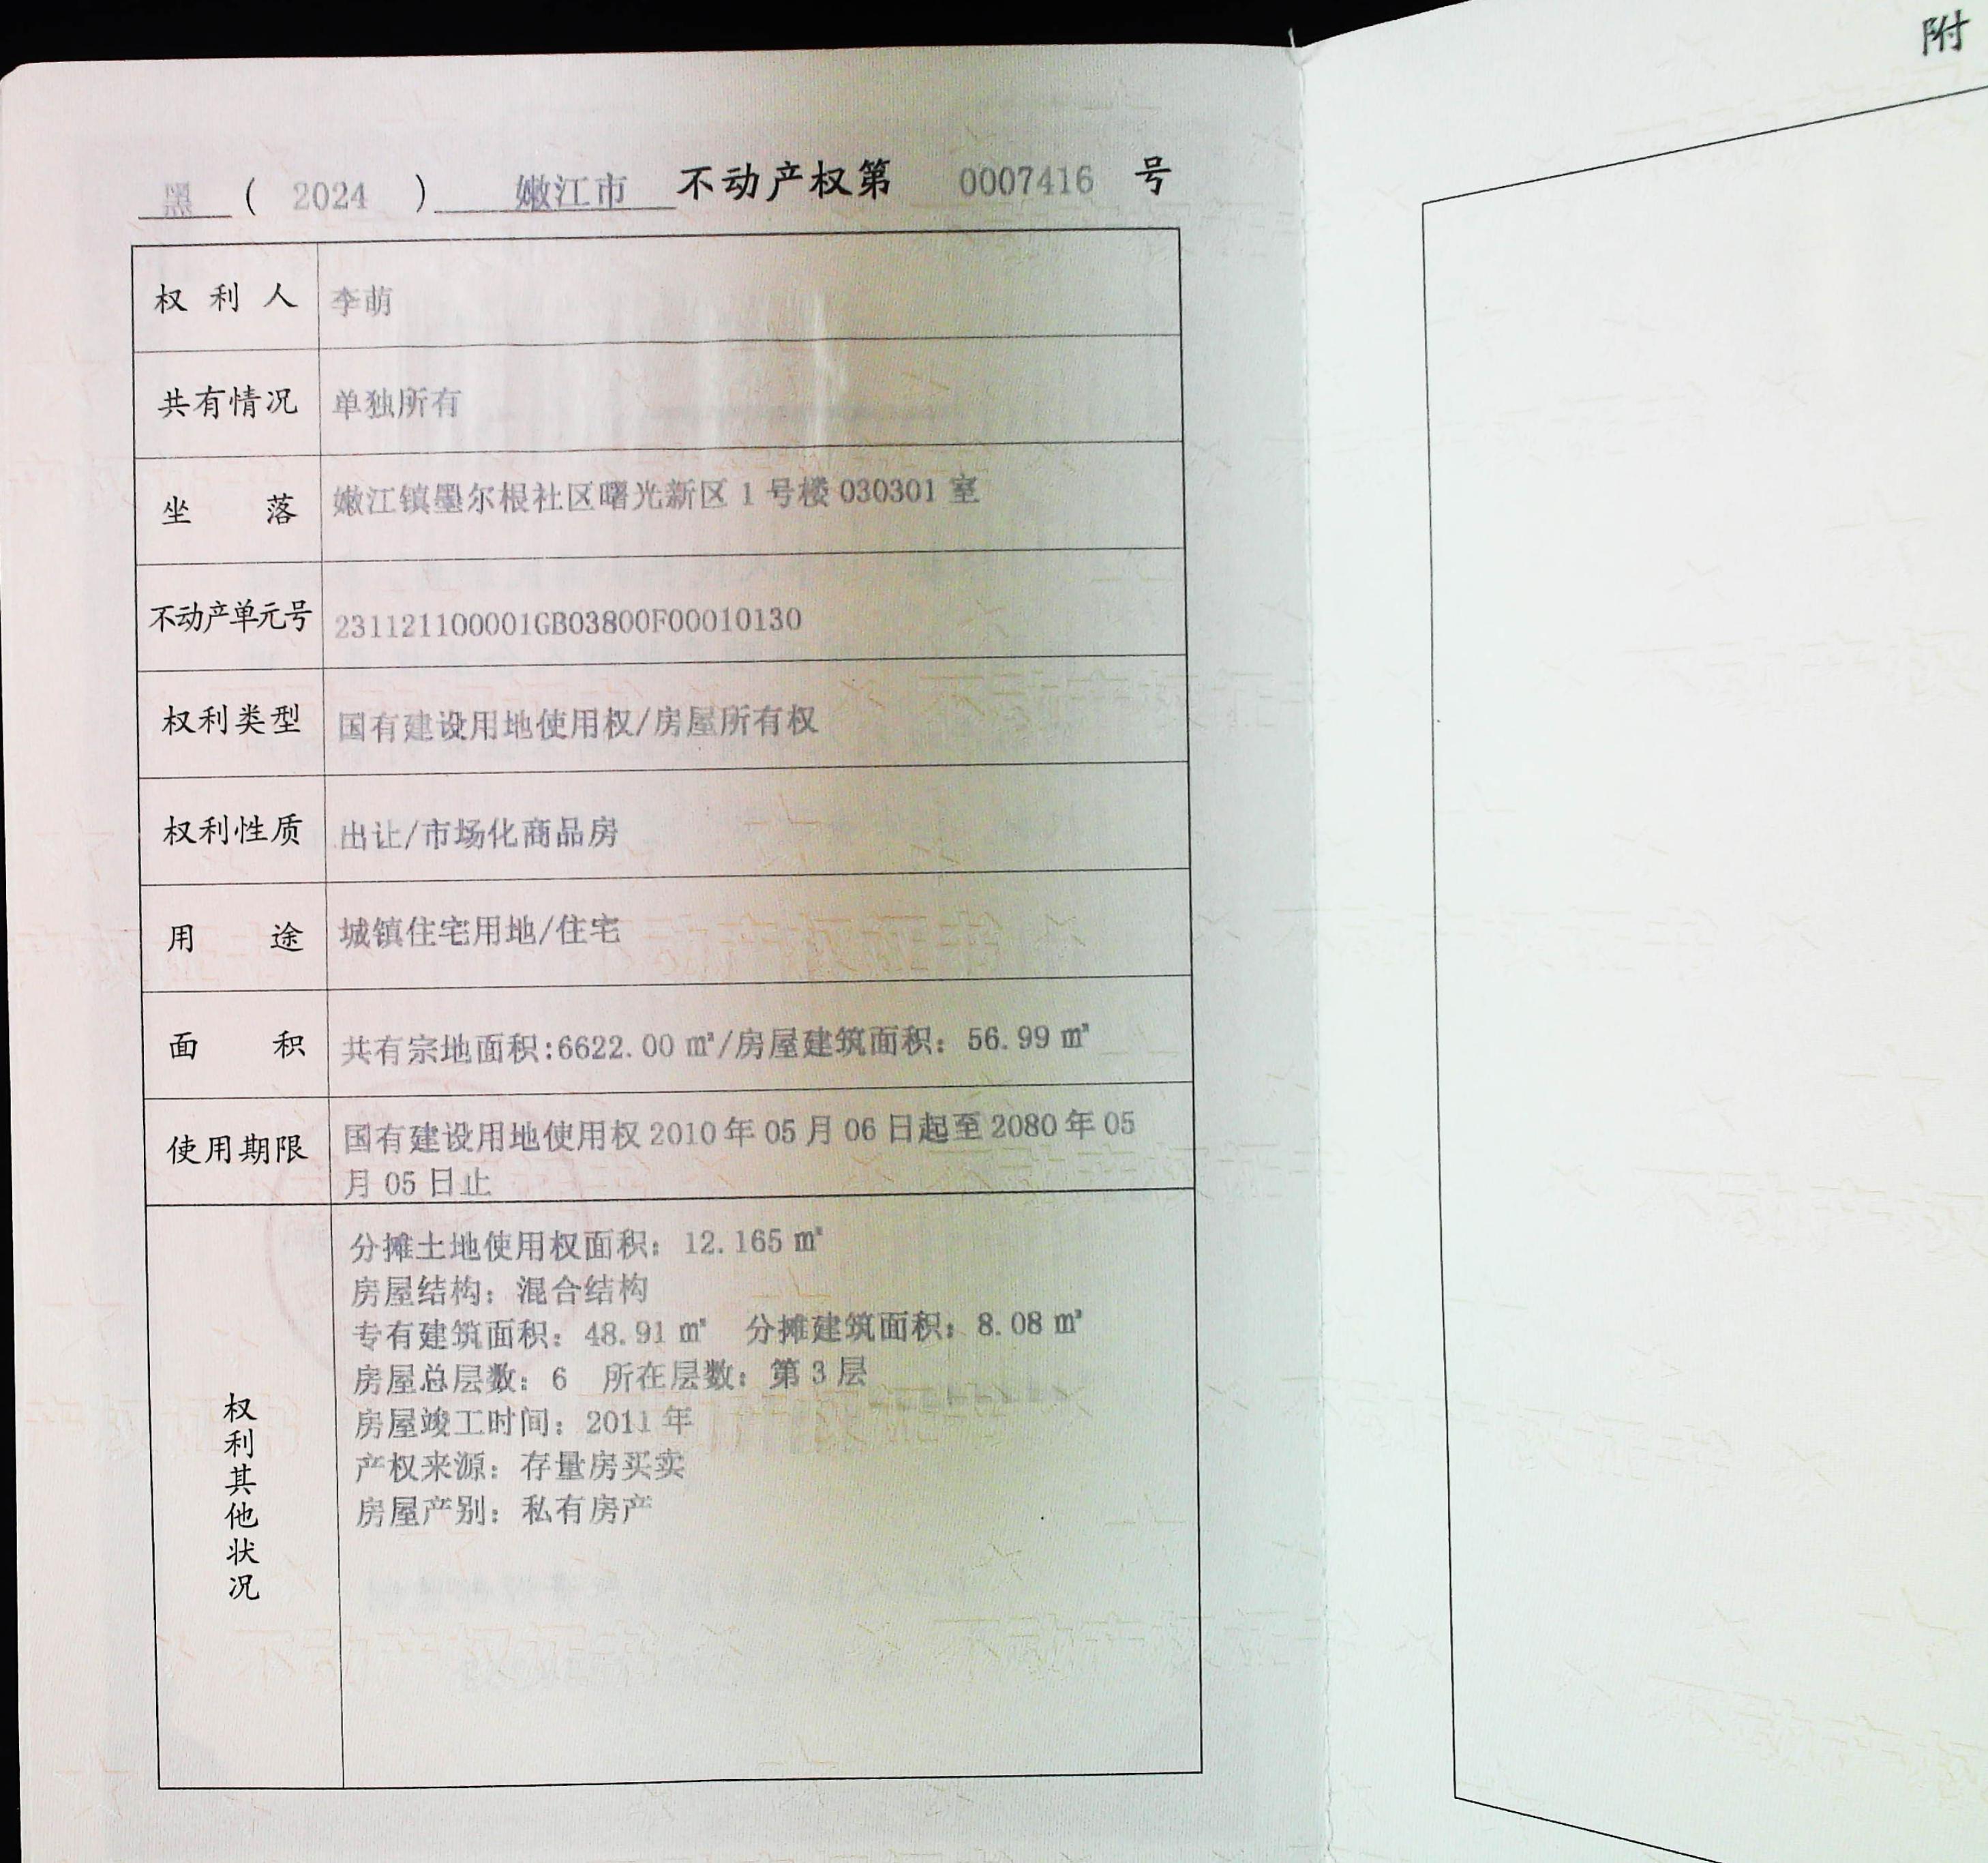 黑 ( 2024 ) 嫩江市 不动产权第 0007416 号
权利人 李萌
共有情况 单独所有
坐落 嫩江镇墨尔根社区曙光新区 1 号楼 030301 室
不动产单元号 231121100001GB03800F00010130
权利类型 国有建设用地使用权/房屋所有权
权利性质 出让/市场化商品房
用途 城镇住宅用地/住宅
面积 共有宗地面积:6622.00 ㎡/房屋建筑面积：56.99 ㎡
使用期限 国有建设用地使用权 2010 年 05 月 06 日起至 2080 年 05
月 05 日止
权利其他状况
分摊土地使用权面积：12.165 ㎡
房屋结构：混合结构
专有建筑面积：48.91 ㎡ 分摊建筑面积：8.08 ㎡
房屋总层数：6 所在层数：第 3 层
房屋竣工时间：2011 年
产权来源：存量房买卖
房屋产别：私有房产
附